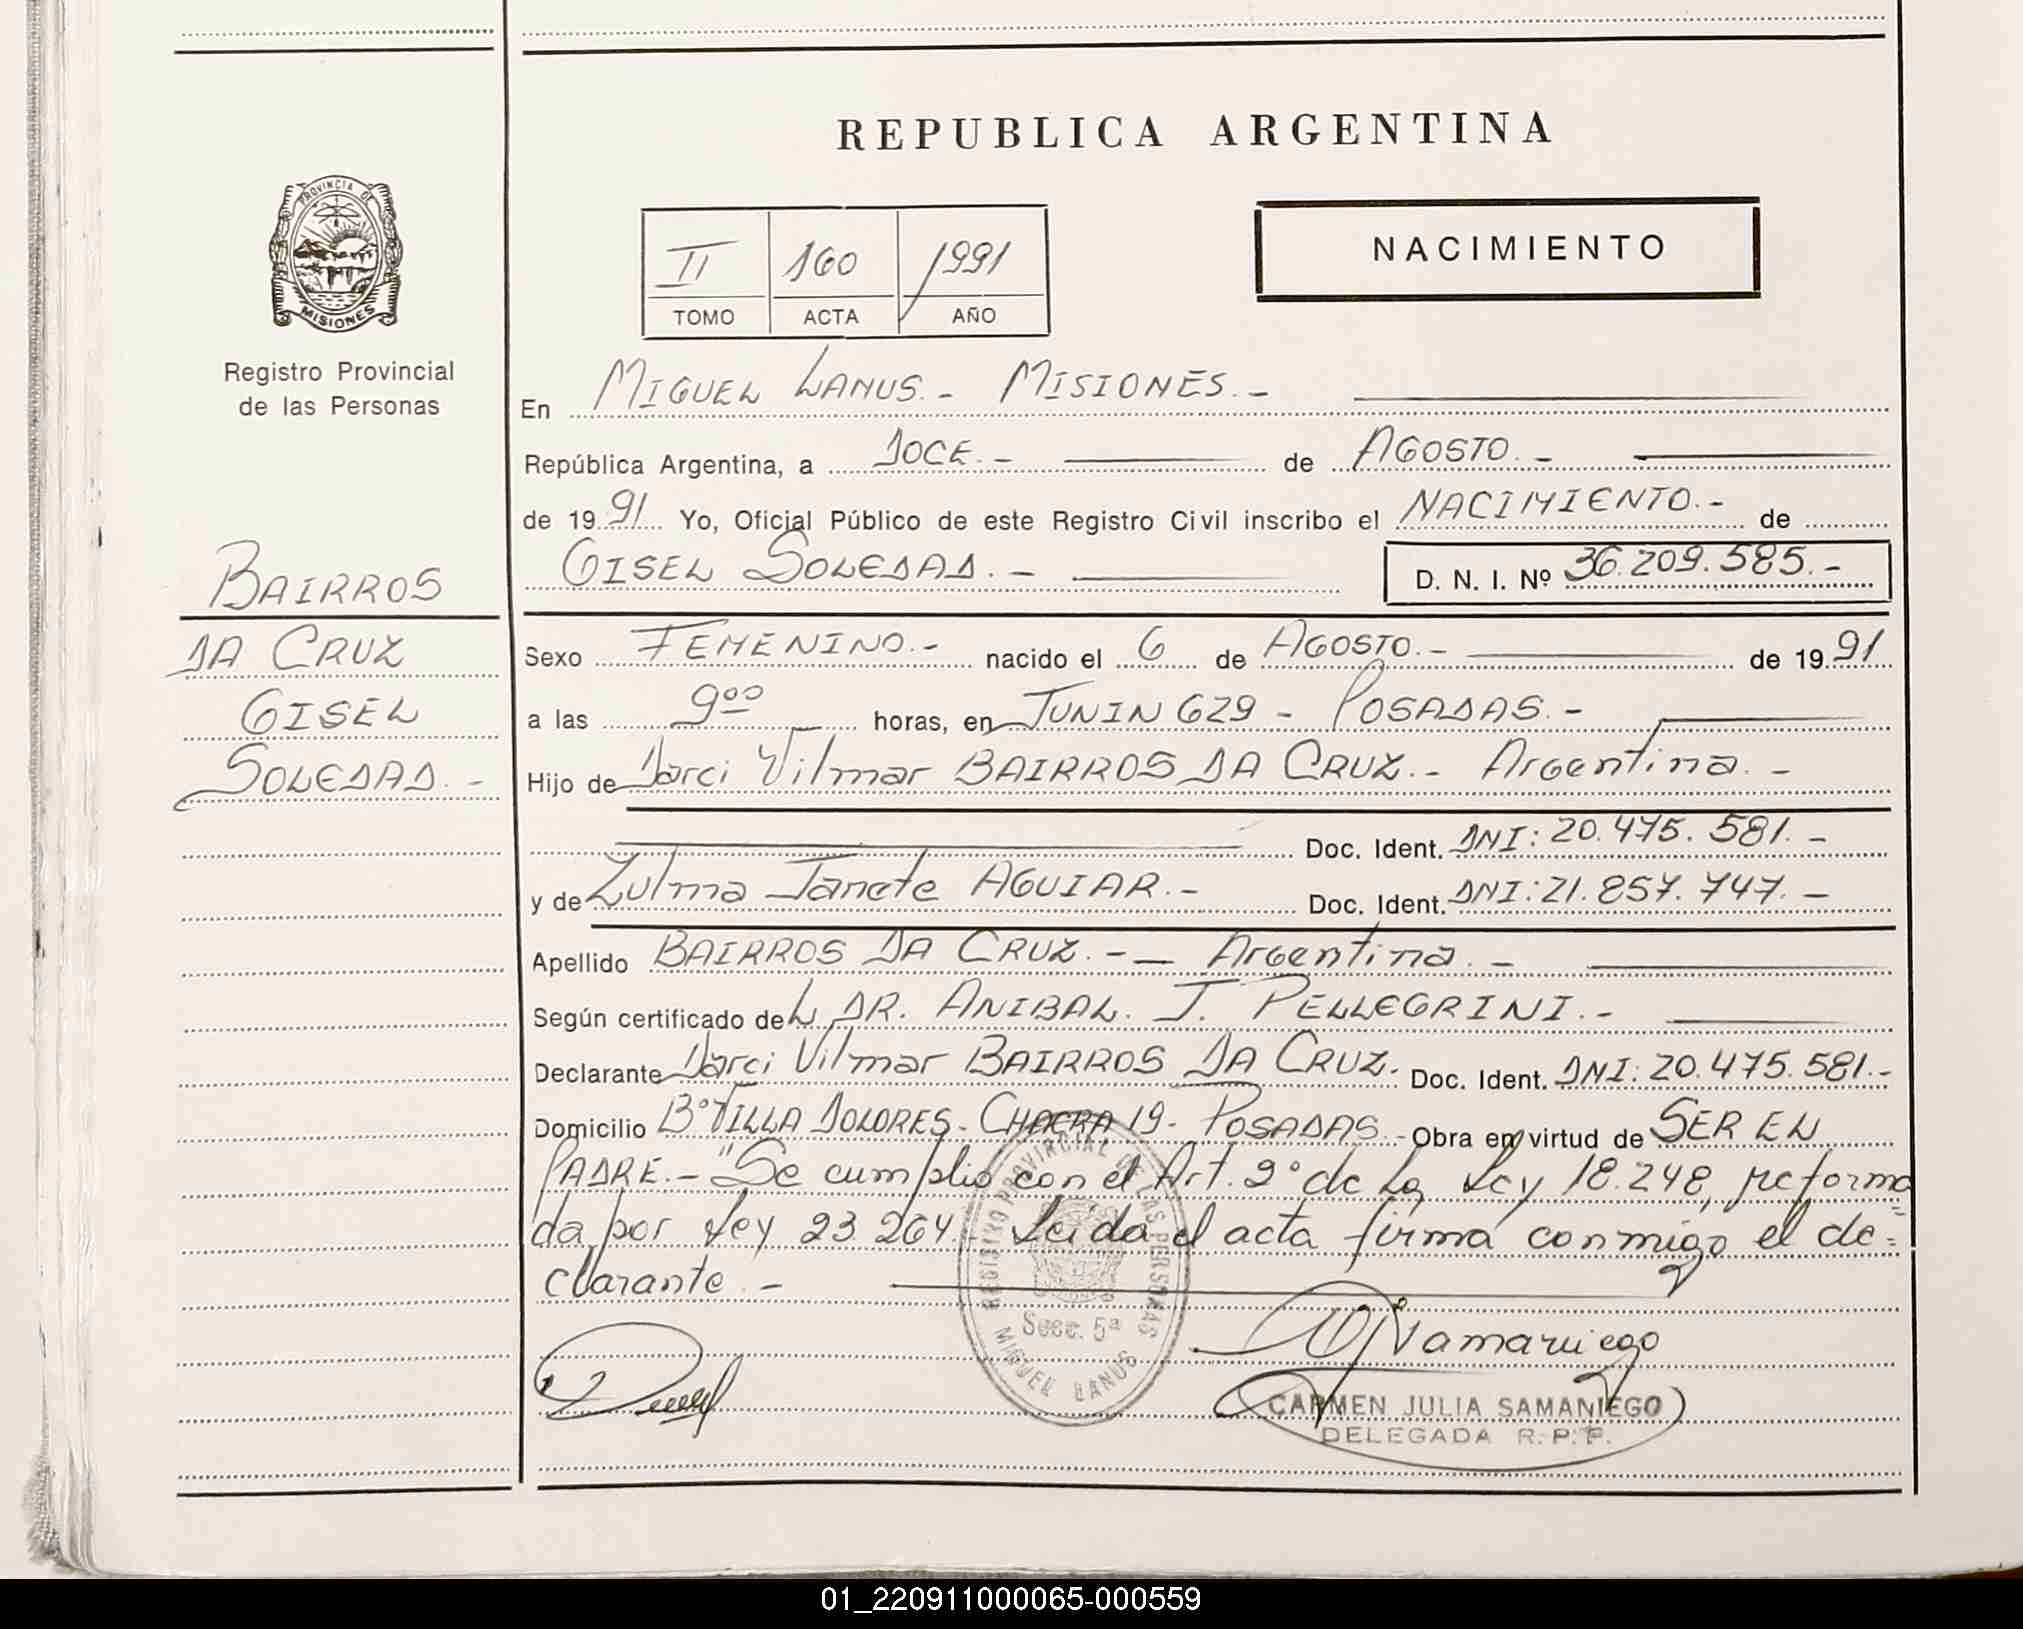 REPUBLICA ARGENTINA
PROVINCIA DE
MISIONES
Registro Provincial
de las Personas
II 160 1991
TOMO ACTA AÑO
NACIMIENTO
En MIGUEL LANUS.- MISIONES.-
República Argentina, a DOCE.- de AGOSTO.-
de 1991 Yo, Oficial Público de este Registro Civil inscribo el NACIMIENTO.- de
GISEL SOLEDAD.- D. N. I. Nº 36.209.585.-
BAIRROS
DA CRUZ
GISEL
SOLEDAD.-
Sexo FEMENINO.- nacido el 6 de AGOSTO.- de 1991
a las 9⁰⁰ horas, en JUNIN 629 - POSADAS.-
Hijo de Darci Vilmar BAIRROS DA CRUZ.- Argentina.-
Doc. Ident. DNI: 20.475.581.-
y de Zulma Janete AGUIAR.- Doc. Ident. DNI: 21.857.747.-
Apellido BAIRROS DA CRUZ.-- Argentina.-
Según certificado deL DR. ANIBAL. J. PELLEGRINI.-
Declarante Darci Vilmar BAIRROS DA CRUZ. Doc. Ident. DNI: 20.475.581.-
Domicilio Bº VILLA DOLORES- CHACRA 19- POSADAS.- Obra en virtud de SER EL
PADRE.- "Se cumplió con el Art. 2º de la Ley 18.248, reforma
da por Ley 23.264.- Leída el acta firma conmigo el de=
clarante.-
REGISTRO PROVINCIAL DE LAS PERSONAS
Secc. 5ª
MIGUEL LANUS
Samaniego
CARMEN JULIA SAMANIEGO
DELEGADA R. P. P.
01_220911000065-000559